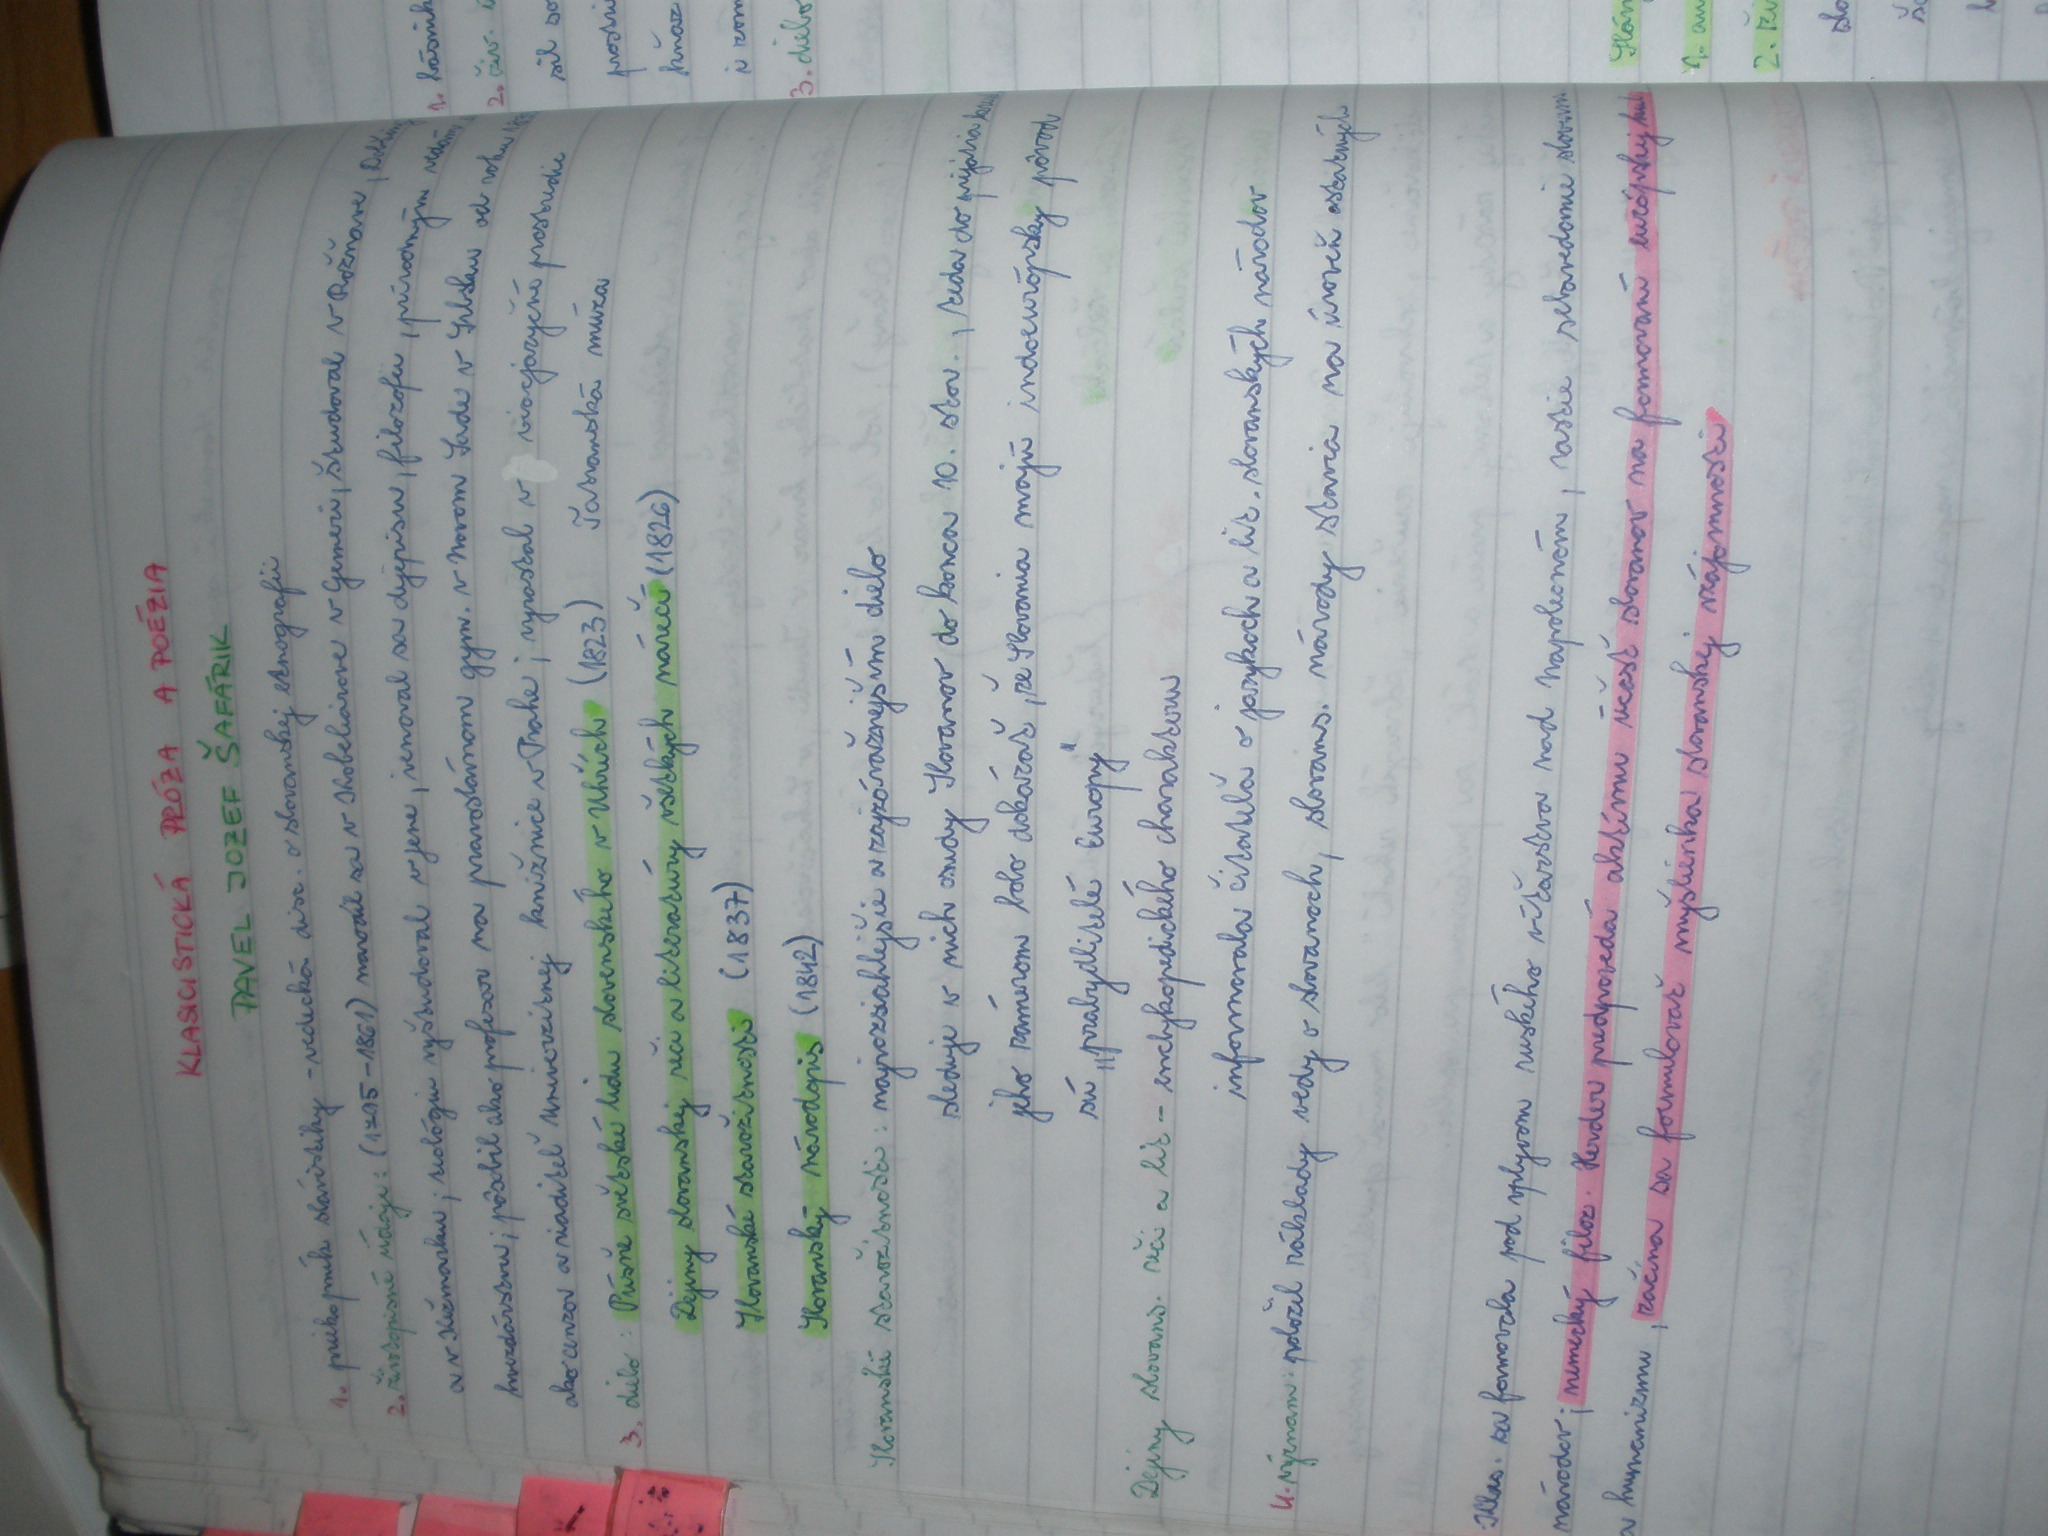 KLASICISTICKÁ PRÓZA A POÉZIA
PAVEL JOZEF ŠAFÁRIK
1. priekopník slavistiky - vedecká disc. o slovanskej etnografii
2. životopisné údaje: (1795-1861) narodil sa v Kobeliarove v Gemeri, študoval v Rožňave,
a v Kežmarku; teológiu vyštudoval v Jene, venoval sa dejepisu, filozofii, prírodným
hvezdárstvu; pôsobil ako profesor na pravoslávnom gym. v Novom Sade v
ako cenzor a riaditeľ univerzitnej knižnice v Prahe; vyrastal v prostredí
3. dielo: Písně světské lidu slovenského v Uhřích (1823) Tatranská múza
Dejiny slovanskej reči a literatúry všetkých nárečí (1826)
Slovanské starožitnosti (1837)
Slovanský národopis (1842)
Slovanské starožitnosti: najrozsiahlejšie a najzávažnejším dielo
sleduje v nich osudy Slovanov do konca 10. stor., teda do prijatia
jeho zámerom bolo dokázať, že Slovania majú indoeurópsky pôvod
sú "prabydliteľé Európy"
Dejiny slovans. reči a lit - encyklopedického charakteru
informovala čitateľa o jazykoch a lit. slovanských národov
4. význam: položil základy vedy o slovanoch, slovans. národy stavia na úroveň ostatných
Klas. sa formovala pod vplyvom ruského víťazstva nad Napoleónom, rastie sebavedomie slovan
národov; nemecký filoz. Herder predpovedá aktívnu účasť slovanov na formovaní európskej
a humanizmu, začína sa formulovať myšlienka slovanskej vzájomnosti
1. básnik
2. živ.
3. dielo
1.
2.